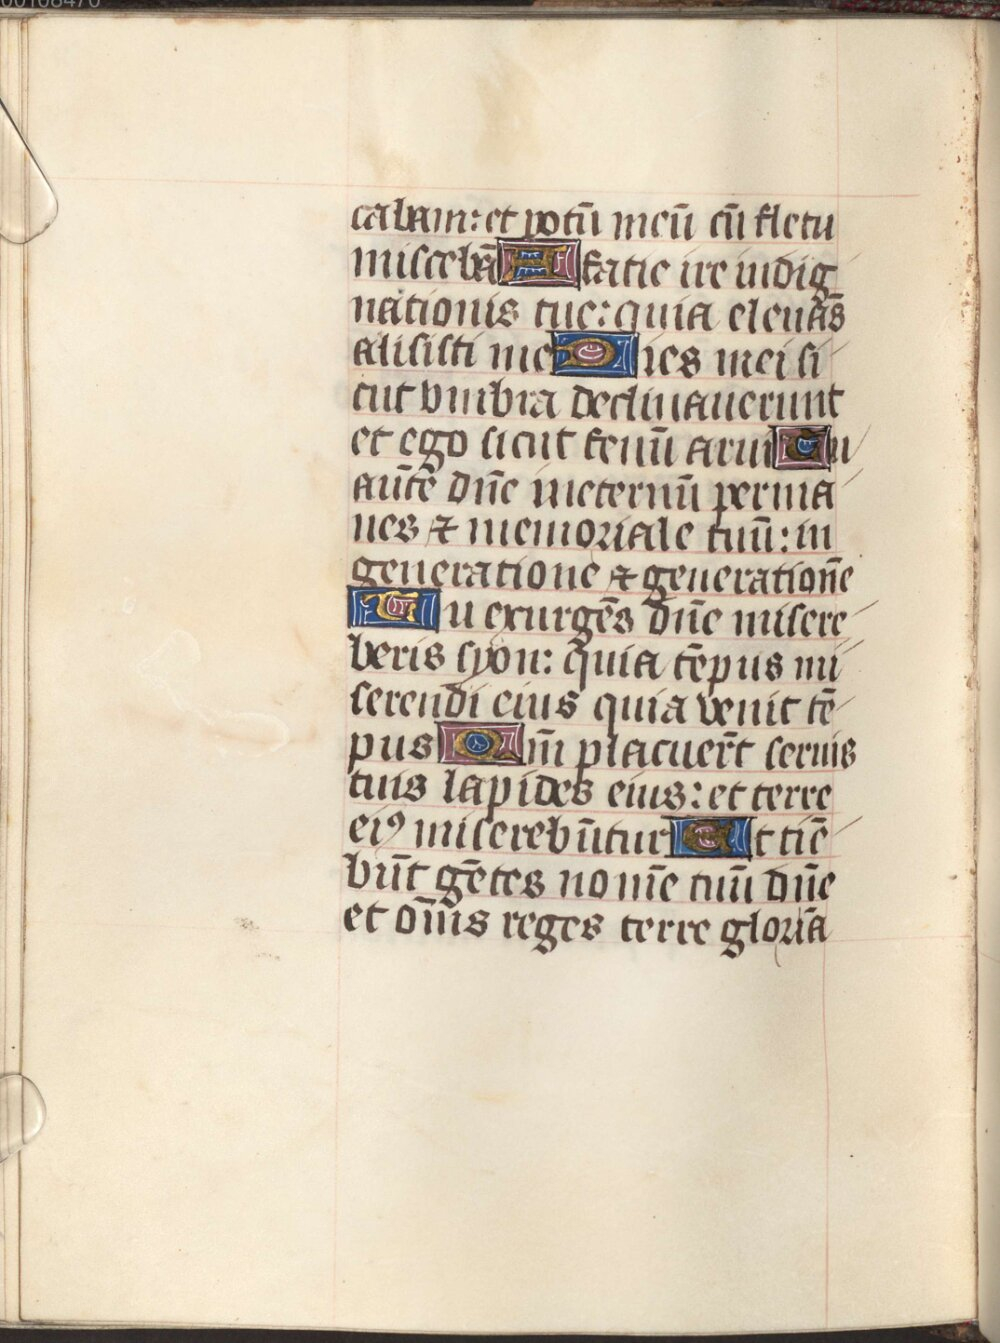 cabam: et potū meū cū fletu
miscebā A facie ire indig
nationis tue: quia eleuās
alisisti me Dies mei si
cut vmbra declinauerunt
et ego sicut fenū arui Tu
autē dn̄e ineternū perma
nes ⁊ memoriale tuū: in
generatione ⁊ generationē
Tu exurgēs dn̄e misere
beris syon: quia tēpus mi
serendi eius quia venit tē
pus Qm̄ placuer̄t seruis
tuis lapides eius: et terre
eiꝰ miserebūtur Et timē
būt gētes nomē tuū dn̄e
et om̄is reges terre gloriā